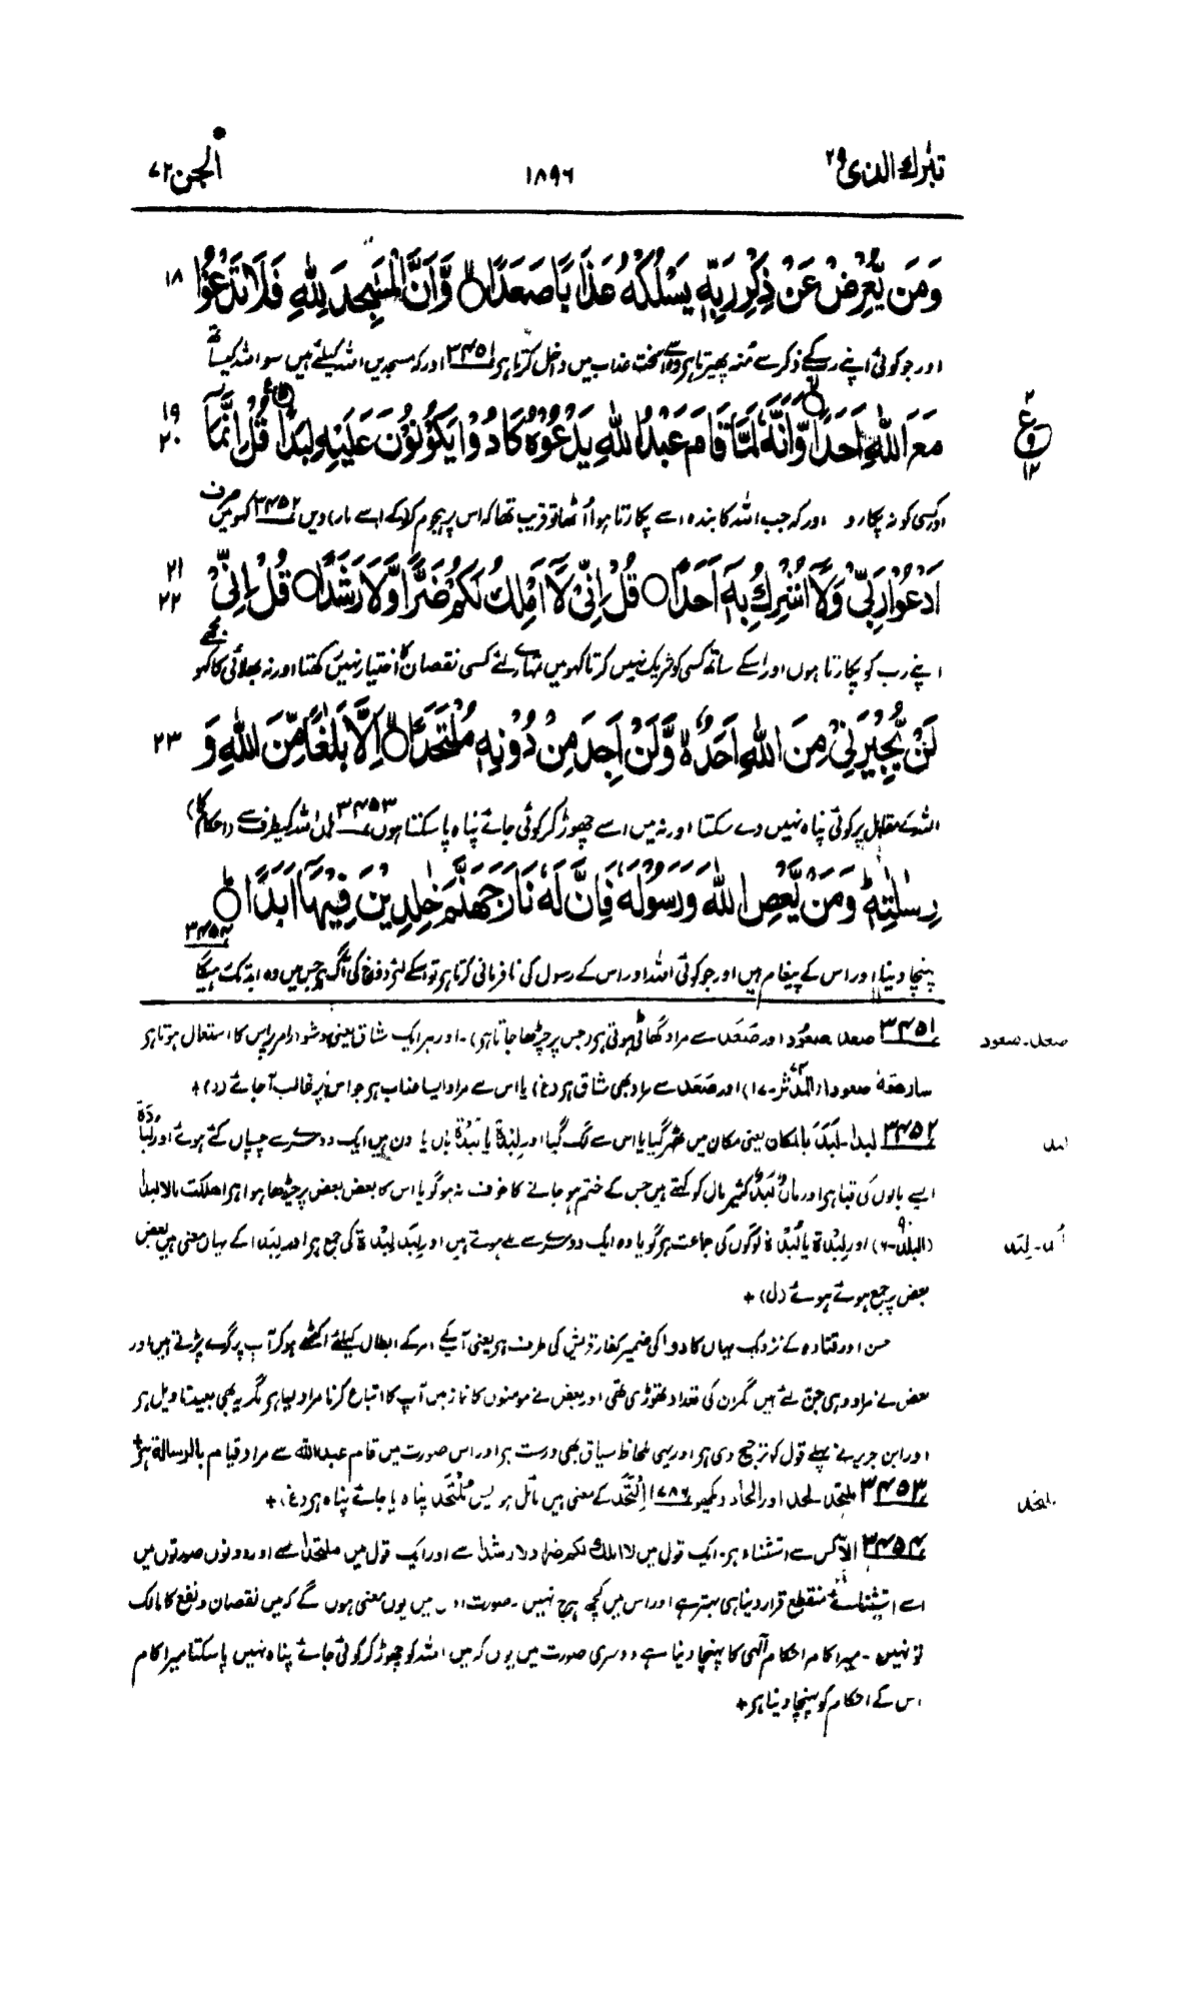 تبٰرك الذى ٢٩
١٨٩٦
الجن ٧٢
وَمَنْ يُّعْرِضْ عَنْ ذِكْرِ رَبِّهٖ يَسْلُكْهُ عَذَابًا صَعَدًا ۝ وَّاَنَّ الْمَسٰجِدَ لِلّٰهِ فَلَا تَدْعُوْا ١٨
اور جو کوئی اپنے رب کے ذکر سے منہ پھیرتا ہو وہ اسے سخت عذاب میں داخل کرتا ہو ٣٤٥١ اور کہ مسجدیں اللہ کیلئے ہیں سو اللہ کیساتھ
مَعَ اللّٰهِ اَحَدًا ۝ وَّاَنَّهٗ لَمَّا قَامَ عَبْدُ اللّٰهِ يَدْعُوْهُ كَادُوْا يَكُوْنُوْنَ عَلَيْهِ لِبَدًا ۝ قُلْ اِنَّمَآ ١٩ ٢٠
اور کسی کو نہ پکارو اور کہ جب اللہ کا بندہ اسے پکارتا ہوا اُٹھا تو قریب تھا کہ اس پر ہجوم کرکے اسے مار دیں ٣٤٥٢ کہو میں صرف
اَدْعُوْا رَبِّيْ وَلَآ اُشْرِكُ بِهٖٓ اَحَدًا ۝ قُلْ اِنِّيْ لَآ اَمْلِكُ لَكُمْ ضَرًّا وَّلَا رَشَدًا ۝ قُلْ اِنِّيْ ٢١ ٢٢
اپنے رب کو پکارتا ہوں اور اسکے ساتھ کسی کو شریک نہیں کرتا کہو میں تمہارے لئے کسی نقصان کا اختیار نہیں رکھتا اور نہ بھلائی کا کہو مجھے
لَنْ يُّجِيْرَنِيْ مِنَ اللّٰهِ اَحَدٌ ۙ وَّلَنْ اَجِدَ مِنْ دُوْنِهٖ مُلْتَحَدًا ۝ اِلَّا بَلٰغًا مِّنَ اللّٰهِ وَ ٢٣
اللہ کے مقابل پر کوئی پناہ نہیں دے سکتا اور نہ میں اسے چھوڑ کر کوئی جائے پناہ پا سکتا ہوں ٣٤٥٣ ہاں اللہ کیطرف سے (احکام کا)
رِسٰلٰتِهٖ ؕ وَمَنْ يَّعْصِ اللّٰهَ وَرَسُوْلَهٗ فَاِنَّ لَهٗ نَارَ جَهَنَّمَ خٰلِدِيْنَ فِيْهَآ اَبَدًا ۝
پہنچا دینا اور اس کے پیغام ہیں اور جو کوئی اللہ اور اس کے رسول کی نافرمانی کرتا ہو تو اسکے لئے دوزخ کی آگ ہو جس میں وہ ابد تک رہیگا ٣٤٥٤
٣٤٥١ صعد صعُوْد اور صَعَد سے مراد گھاٹی ہوتی ہو (جس پر چڑھا جاتا ہو)۔ اور ہر ایک شاق یعنی دشوار امر پر اس کا استعمال ہوتا ہو
صعد۔ صعود
سارهقهٗ صعودا (المدثر ٧٤۔١٧) اور صَعَد سے مراد بھی شاق ہو (غ) یا اس سے مراد ایسا عذاب ہو جو اس پر غالب آجائے (ر) +
٣٤٥٢ لبدا۔ لَبَدَ بالمکان یعنی مکان میں ٹھہر گیا یا اس سے لگ گیا اور لِبْدَة یا لُبْدَة بال یا اون ہیں ایک دوسرے سے چسپاں کئے ہوئے اور لُبَّادَة
لبد
ایسے بالوں کی قبا ہو اور مالٌ لُبَدٌ کثیر مال کو کہتے ہیں جس کے ختم ہو جانے کا خوف نہ ہو گویا اس کا بعض بعض پر چڑھا ہوا ہو اهلكت مالا لبدا
(البلد ٩٠۔٦) اور لِبْدَة یا لُبْدَة لوگوں کی جماعت ہو گویا وہ ایک دوسرے سے ملے ہوئے ہیں اور لِبَد لِبْدَة کی جمع ہو اور لِبَدا کے یہاں معنی ہیں بعض
بعض پر جمع ہوتے ہوئے (ل) +
حسن اور قتادہ کے نزدیک یہاں کادوا کی ضمیر کفار قریش کی طرف ہو یعنی آپ کے امر کے ابطال کیلئے اکٹھے ہو کر آپ پر گرے پڑتے ہیں اور
بعض نے مراد وہی جن لئے ہیں مگر ان کی تعداد تھوڑی تھی اور بعض نے مومنوں کا نماز میں آپ کا اتباع کرنا مراد لیا ہو مگر یہ بھی بعید تاویل ہو
اور ابن جریر نے پہلے قول کو ترجیح دی ہو اور یہی بلحاظ سیاق بھی درست ہو اور اس صورت میں قام عبد اللّٰہ سے مراد قیام بالرسالة ہو +
٣٤٥٣ ملتحد۔ لحد اور الحاد دیکھو ١٧٨٦ اِلْتَحَدَ کے معنی ہیں مائل ہو پس مُلْتَحَد پناہ یا جائے پناہ ہو (غ) +
ملتحد
٣٤٥٤ الّا کس سے استثناء ہو۔ ایک قول میں لا املك لكم ضرا ولا رشدا سے اور ایک قول میں ملتحدا سے اور دونوں صورتوں میں
اسے استثنائے منقطع قرار دینا ہی بہتر ہے اور اس میں کچھ ہرج نہیں۔ صورت اول میں یوں معنی ہوں گے کہ میں نقصان و نفع کا مالک
تو نہیں۔ میرا کام احکام الٰہی کا پہنچا دینا ہے دوسری صورت میں یوں کہ میں اللہ کو چھوڑ کر کوئی جائے پناہ نہیں پا سکتا میرا کام
اس کے احکام کو پہنچا دینا ہو +